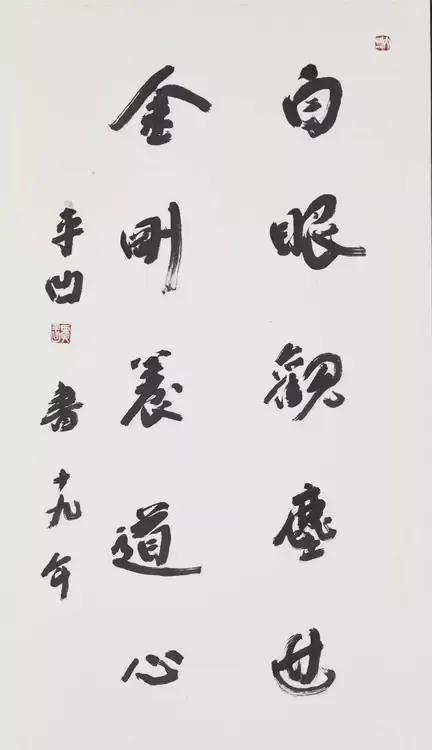 白眼觀塵世
金剛養道心
平凹書十九年